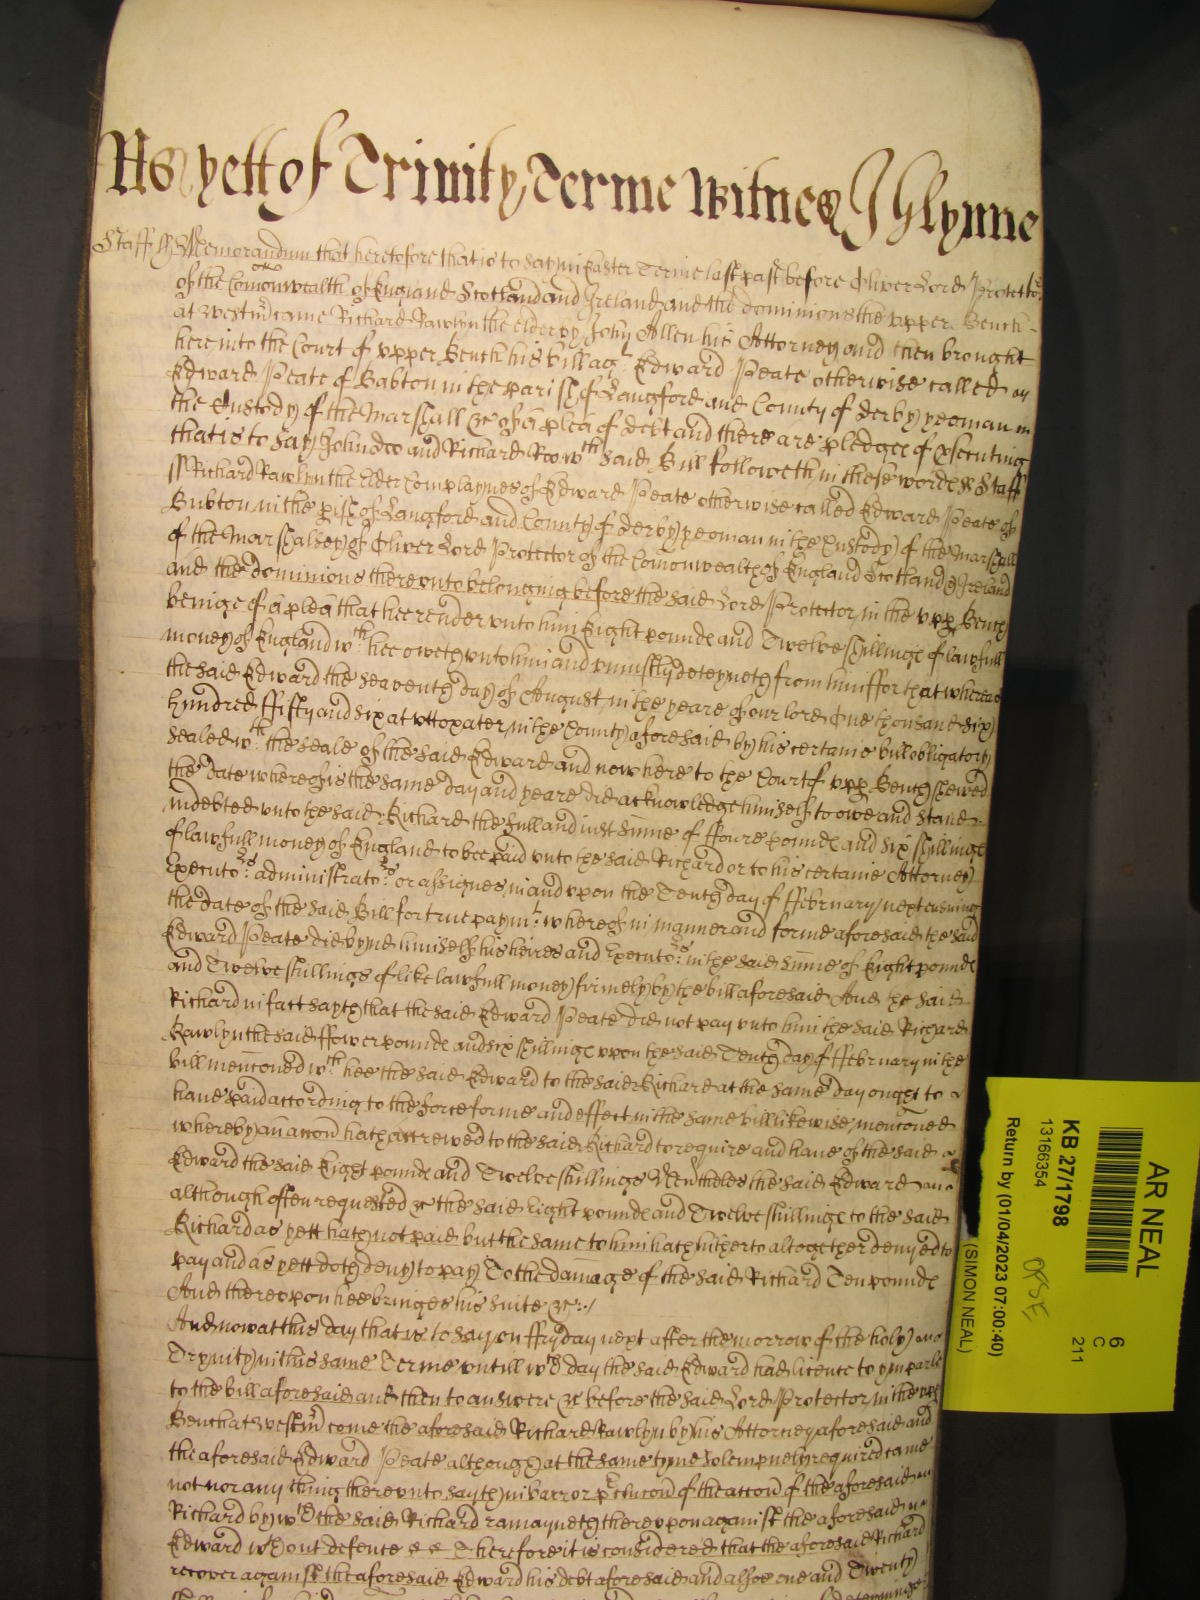 As yett of Trinity Terme Witnes J Glynne
Staff ss Memorandum that heretofore that is to say in Easter Terme last past before Oliver Lord Protector
of the Comonwealth of England Scotland and Ireland and the dominions the upper Bench
at Westm came Richard Rawlyn the elder by John Allen his Attorney and then brought
here into the Court of upper Bench his bill agt Edward Peate otherwise called
Edward Peate of Babton in the parish of Langford and County of derby yeoman in
the Custody of the Marshall &c of a plea of debt and there are pledges of p̱secuting
that is to say John doo and Richard Roo wth said Bill followeth in these words ss Staff
ss Richard Rawlyn the elder Complaynes of Edward Peate otherwise called Edward Peate of
Bubton in the pish of Langford and County of derby yeoman in the Custody of the Marshall
of the Marshalsey of Oliver Lord Protector of the Comonwealth of England Scotland & Ireland
and the dominions thereunto belonging before the said Lord Protector in the upp Bench
beinge of a plea that hee render unto him Eight pounds and Twelve shillings of lawfull
money of England wth hee oweth unto him and uniustly deteyneth from him ffor that whereas
the said Edward the seaventh day of August in the yeare of our lord One thousand six
hundred ffifty and six at uttoxater in the County aforesaid by his certaine bill obligatory
sealed wth the seale of the said Edward and now here to the Court of upp Bench shewed
the date whereof is the same day and yeare did acknowledge himself to owe and stand
indebted unto the said Richard the full and iust sume of ffoure pounds and six shillings
of lawfull money of England to bee paid unto the said Richard or to his certaine Attorney
Executors administrators or assignes in and upon the Tenth day of ffebruary next ensuing
the date of the said Bill for true paymt whereof in manner and forme aforesaid the said
Edward Peate did bynd himself his heires and Executors in the said sume of Eight pounds
and Twelve shillings of like lawfull money firmely by the bill aforesaid And the said
Richard in fact sayth that the said Edward Peate did not pay unto him the said Richard
Rawlyn the said ffower pounds and six shillings upon the said Tenth day of ffebruary in the
bill menconed wth hee the said Edward to the said Richard at the same day ought to
have paid according to the force forme and effect in the same bill likewise menconed
whereby an accon hath accrewed to the said Richard to require and have of the said
Edward the said Eight pounds and Twelve shillings Nevtheles the said Edward
although often requested &c the said Eight pounds and Twelve shillings to the said
Richard as yett hath not paid but the same to him hath hitherto altogether denyed to
pay and as yett doth deny to pay To the damage of the said Richard Ten pounds
And thereupon hee bringes his suite &c
And now at this day that is to say on ffryday next after the morrow of the holy
Trynity in this same Terme untill wch day the said Edward had licence to ymparle
to the bill aforesaid and then to answere &c before the said Lord Protector in the upp
Bench at Westm come the aforesaid Richard Rawlyn by his Attorney aforesaid and
the aforesaid Edward Peate although at the same tyme solempnely required came
not nor any thing thereunto sayth in barr or p̱clucon of the accon of the aforesaid
Richard by wch the said Richard ramayneth thereupon against the aforesaid
Edward wthout defence Therefore it is considered that the aforesaid Richard
recover against the aforesaid Edward his debt aforesaid and alsoe one and Twenty
AR NEAL
6
C
211
KB 27/1798
13166354
OPSE
Return by (01/04/2023 07:00:40)
(SIMON NEAL)